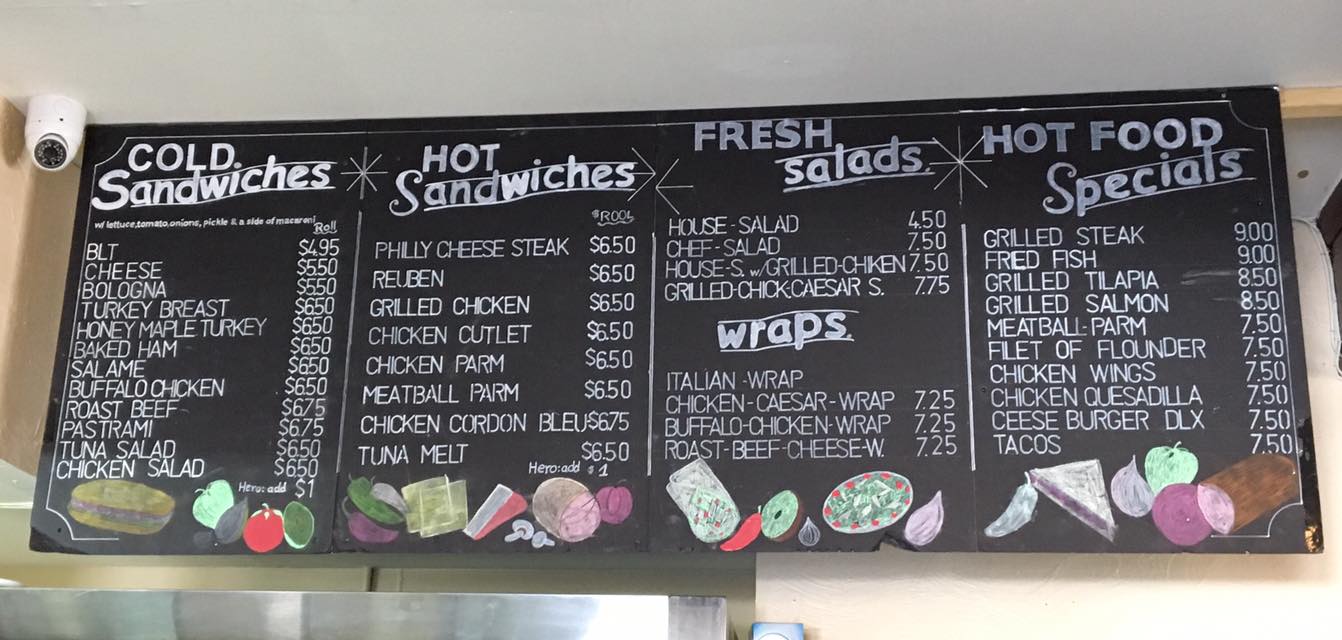 COLD.
Sandwiches
w/ lettuce,tomato,onions, pickle & a side of macaroni
Roll
BLT $4.95
CHEESE $5.50
BOLOGNA $5.50
TURKEY BREAST $6.50
HONEY MAPLE TURKEY $6.50
BAKED HAM $6.50
SALAME $6.50
BUFFALO CHICKEN $6.50
ROAST BEEF $6.75
PASTRAMI $6.75
TUNA SALAD $6.50
CHICKEN SALAD $6.50
Hero: add $1
HOT
Sandwiches
PHILLY CHEESE STEAK $6.50
REUBEN $6.50
GRILLED CHICKEN $6.50
CHICKEN CUTLET $6.50
CHICKEN PARM $6.50
MEATBALL PARM $6.50
CHICKEN CORDON BLEU $6.75
TUNA MELT $6.50
Hero: add $1
FRESH
salads.
HOUSE-SALAD 4.50
CHEF-SALAD 7.50
HOUSE-S. w/GRILLED-CHIKEN 7.50
GRILLED-CHICK:CAESAR S. 7.75
wraps.
ITALIAN-WRAP
CHICKEN-CAESAR-WRAP 7.25
BUFFALO-CHICKEN-WRAP 7.25
ROAST-BEEF-CHEESE-W. 7.25
HOT FOOD
Specials
GRILLED STEAK 9.00
FRIED FISH 9.00
GRILLED TILAPIA 8.50
GRILLED SALMON 8.50
MEATBALL-PARM 7.50
FILET OF FLOUNDER 7.50
CHICKEN WINGS 7.50
CHICKEN QUESADILLA 7.50
CEESE BURGER DLX 7.50
TACOS 7.50